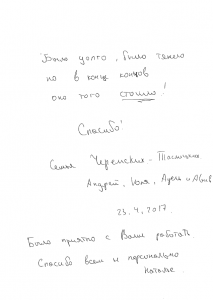 Было долго, было тяжело
но в конце концов
оно того стоило!
Спасибо!
Семья
Андрей, Юля, Адель и
23.4.2017.
Было приятно с Вами работать
Спасибо всем и персонально
Наталье.